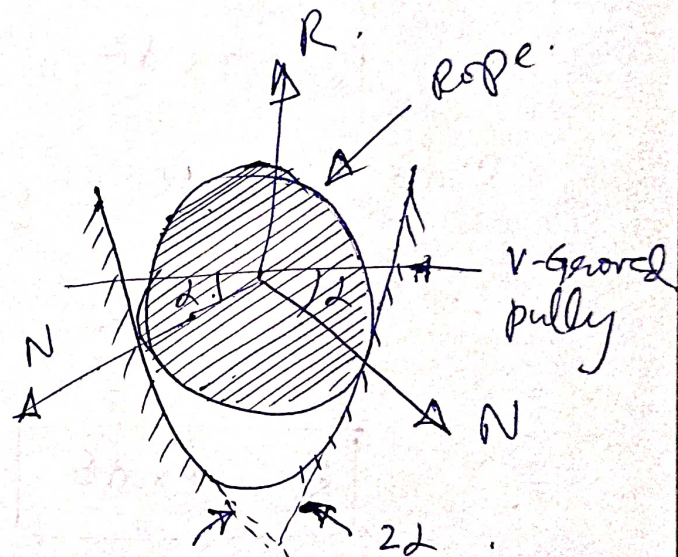 R.
Rope.
V-Geroved
pully
α
α
N
N
2α